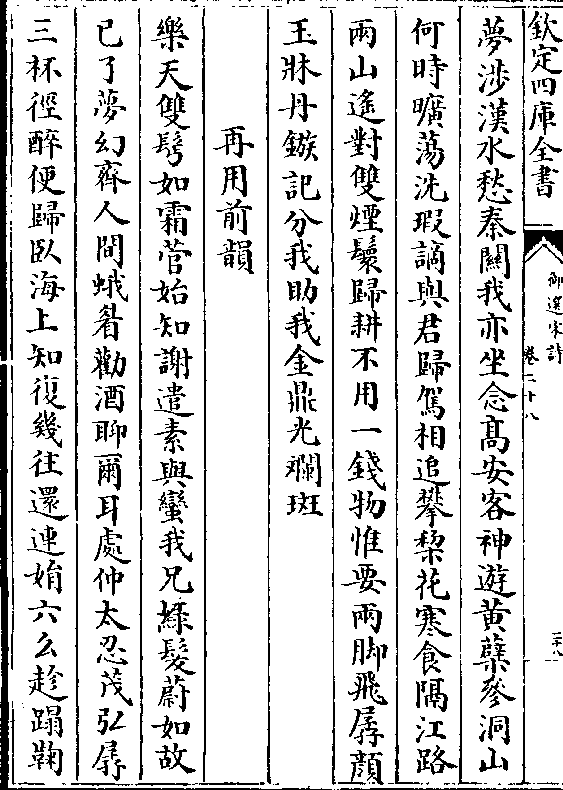 欽定四庫全書
御選宋詩
卷二十八
二十八
夢渉漢水愁秦關我亦坐念髙安客神遊黃蘗參洞山
何時曠蕩洗瑕謫與君歸駕相追攀棃花寒食隔江路
兩山遙對雙煙鬟歸耕不用一錢物惟要兩脚飛孱顔
玉牀丹鏃記分我助我金鼎光斕斑
再用前韻
樂天雙鬢如霜菅始知謝遣素與蠻我兄綠髮蔚如故
已了夢幻齊人間蛾眉勸酒聊爾耳處仲太忍茂弘孱
三杯徑醉便歸臥海上知復幾往還連娟六么趁蹋鞠